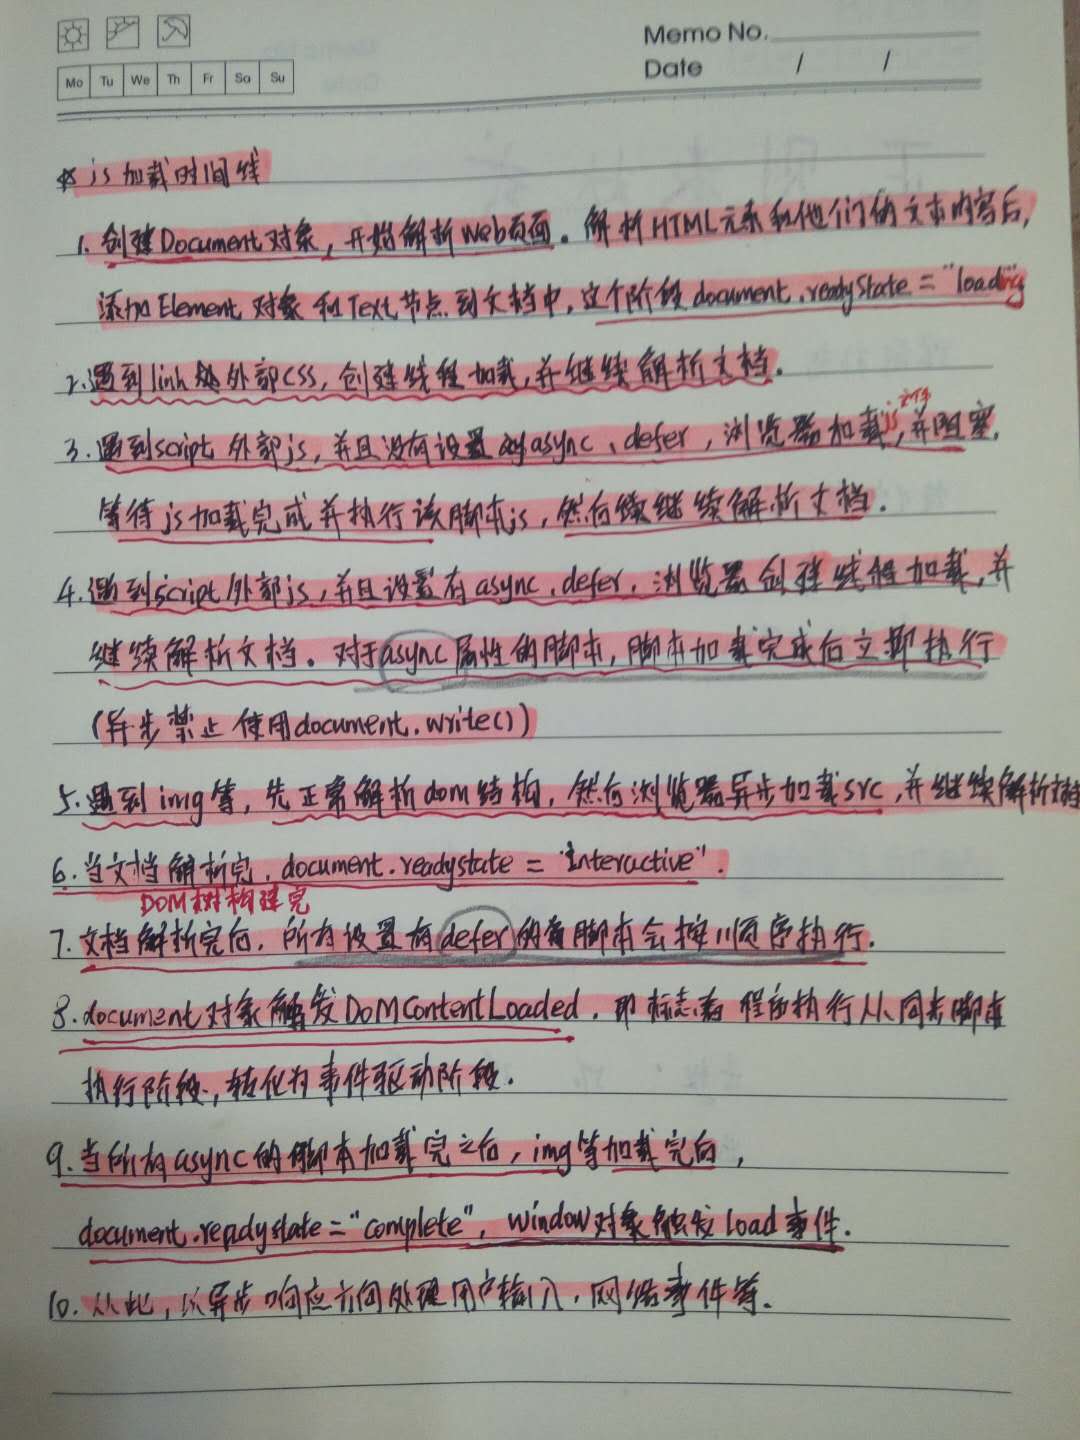 Memo No.
Date / /
Mo Tu We Th Fr Sa Su
js加载时间线
1. 创建Document对象，开始解析web页面。解析HTML元素和他们的文本内容后，
添加Element对象和Text节点到文档中，这个阶段document.readyState = "loading"
2. 遇到link外部css，创建线程加载，并继续解析文档。
3. 遇到script外部js，并且没有设置async、defer，浏览器加载js文件，并阻塞，
等待js加载完成并执行该脚本js，然后继续解析文档。
4. 遇到script外部js，并且设置有async、defer，浏览器创建线程加载，并
继续解析文档。对于async属性的脚本，脚本加载完成后立即执行
（异步禁止使用document.write()）
5. 遇到img等，先正常解析dom结构，然后浏览器异步加载src，并继续解析文档
6. 当文档解析完，document.readystate = "interactive".
DOM树构建完
7. 文档解析完后，所有设置有defer的脚本会按顺序执行.
8. document对象触发DOMContentLoaded，即标志着程序执行从同步脚本
执行阶段，转化为事件驱动阶段.
9. 当所有async的脚本加载完之后，img等加载完后，
document.readystate="complete"，window对象触发load事件.
10. 从此，以异步响应方向处理用户输入，网络事件等.